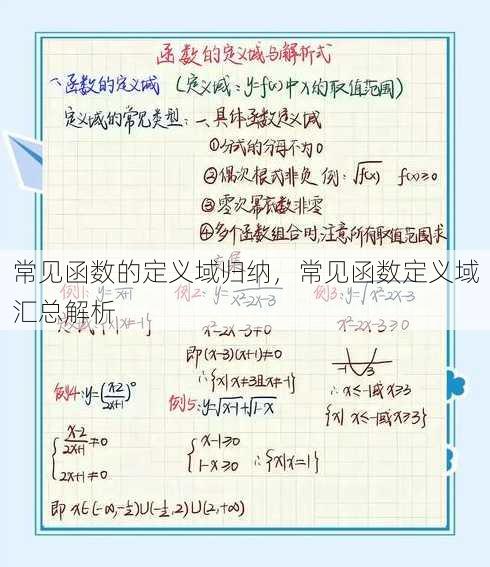 函数的定义域与解析式
一、函数的定义域 (定义域:y=f(x)中x的取值范围)
定义域的常见类型:一、具体函数定义域
①分式的分母不为0
②偶次根式非负 例:√f(x) f(x)≥0
③零次幂底数非零
④多个函数组合时,注意所有取值范围求
常见函数的定义域归纳，常见函数定义域
汇总解析
例1: 例2: 例3:y=√x²-2x-3
x²-2x-3≠0 x²-2x-3≥0
即(x-3)(x+1)≠0
∴{x|x≠3且x≠-1}
-1 3
∴x≤-1或x≥3
{x|x≤-1或x≥3}
例4:y=(x-2/2x+1)⁰ 例5:y=√x-1+√1-x
{x-2/2x+1≠0 {x-1≥0
2x+1≠0 1-x≥0 ∴{x|x=1}
即x∈(-∞,-1/2)∪(-1/2,2)∪(2,+∞)